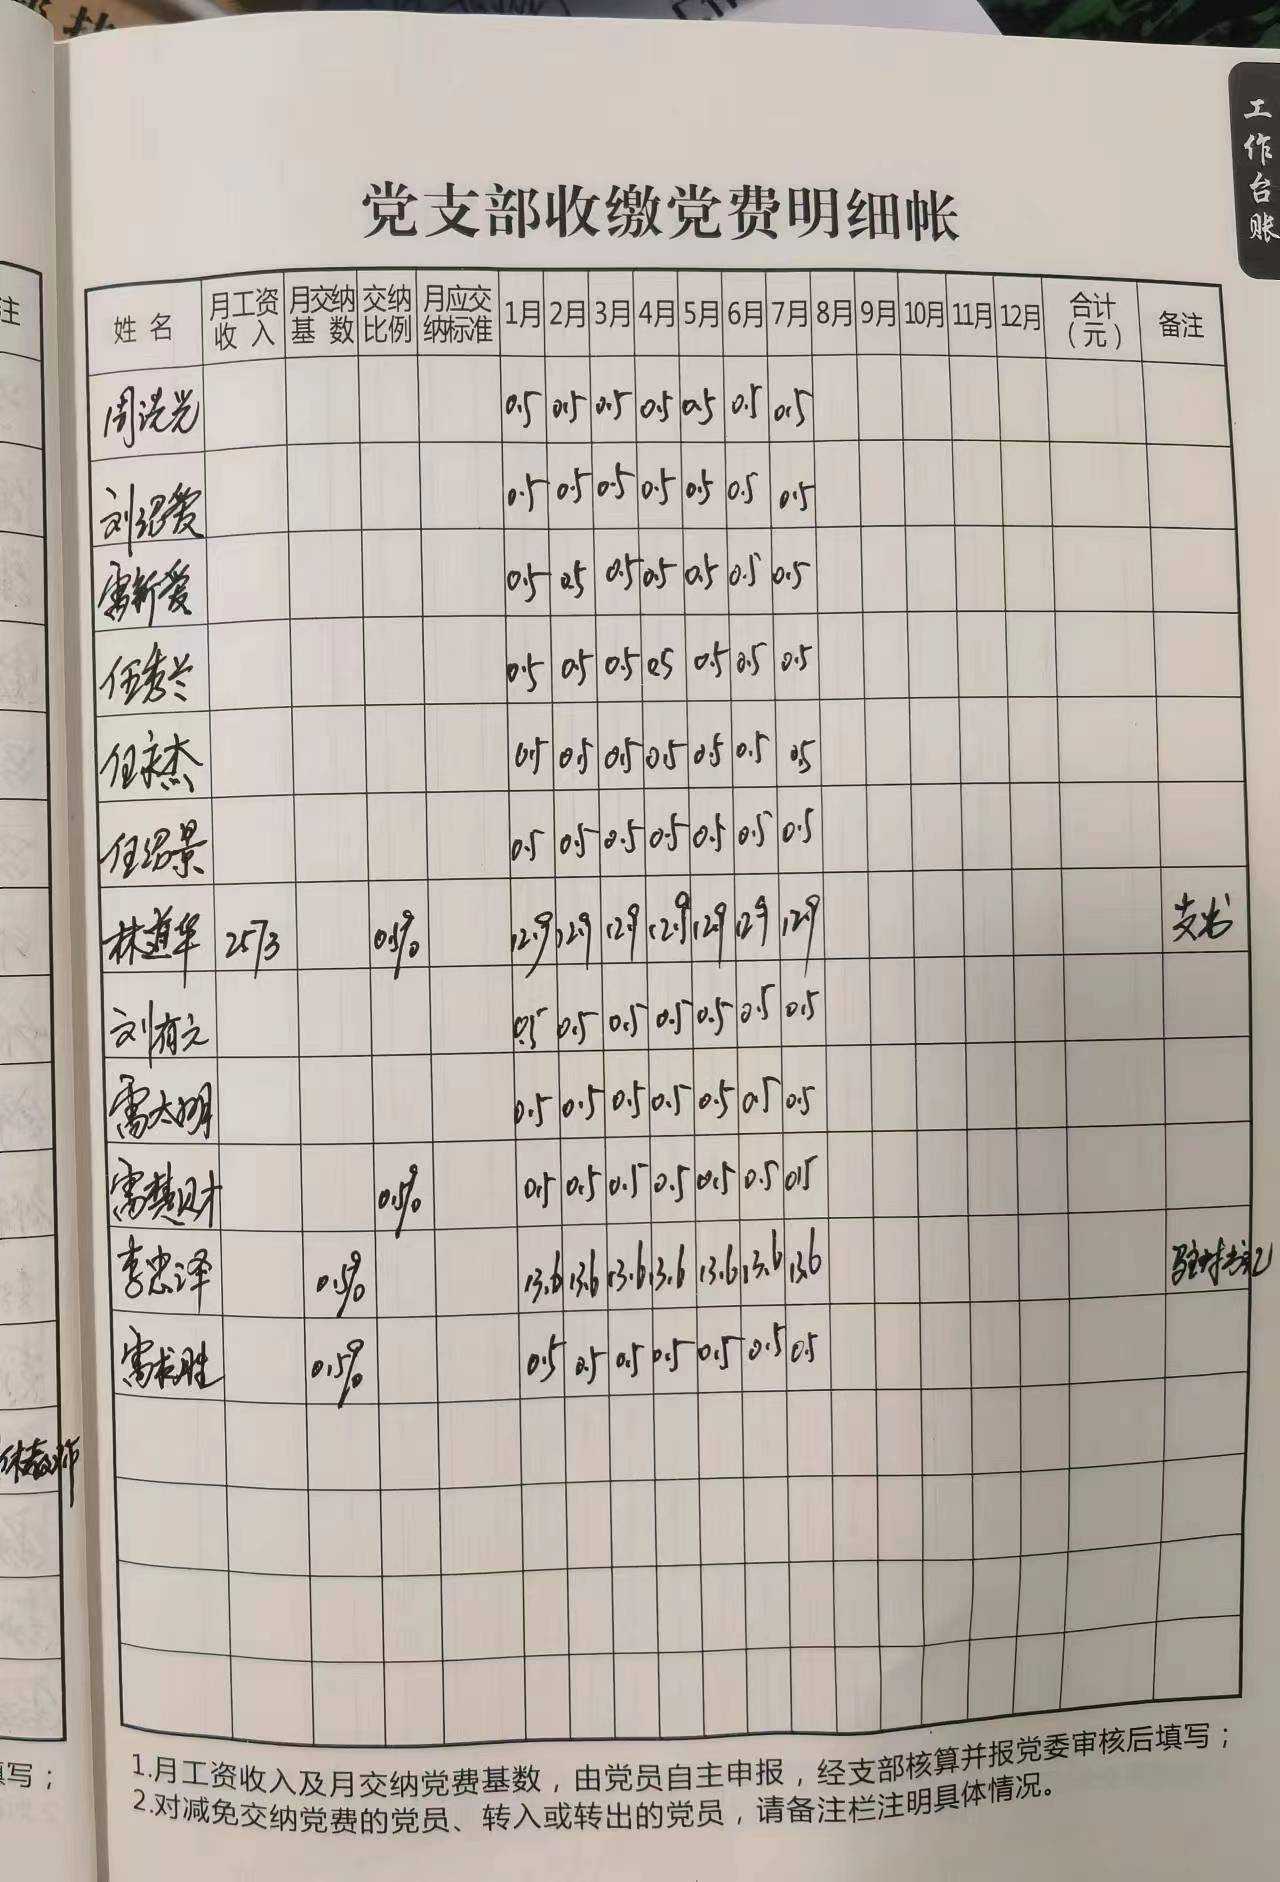 工作台账
党支部收缴党费明细帐
姓名 月工资收入 月交纳基数 交纳比例 月应交纳标准 1月 2月 3月 4月 5月 6月 7月 8月 9月 10月 11月 12月 合计（元） 备注
周洪光 0.5 0.5 0.5 0.5 0.5 0.5 0.5
刘绍爱 0.5 0.5 0.5 0.5 0.5 0.5 0.5
雷新爱 0.5 0.5 0.5 0.5 0.5 0.5 0.5
任秀兰 0.5 0.5 0.5 0.5 0.5 0.5 0.5
任永杰 0.5 0.5 0.5 0.5 0.5 0.5 0.5
任绍景 0.5 0.5 0.5 0.5 0.5 0.5 0.5
林道华 2573 0.5% 12.9 12.9 12.9 12.9 12.9 12.9 12.9 支书
刘有元 0.5 0.5 0.5 0.5 0.5 0.5 0.5
雷太明 0.5 0.5 0.5 0.5 0.5 0.5 0.5
雷楚财 0.5% 0.5 0.5 0.5 0.5 0.5 0.5 0.5
李忠泽 0.5% 13.6 13.6 13.6 13.6 13.6 13.6 13.6 驻村书记
雷 胜 0.5% 0.5 0.5 0.5 0.5 0.5 0.5 0.5
1.月工资收入及月交纳党费基数，由党员自主申报，经支部核算并报党委审核后填写；
2.对减免交纳党费的党员、转入或转出的党员，请备注栏注明具体情况。
注
填写；